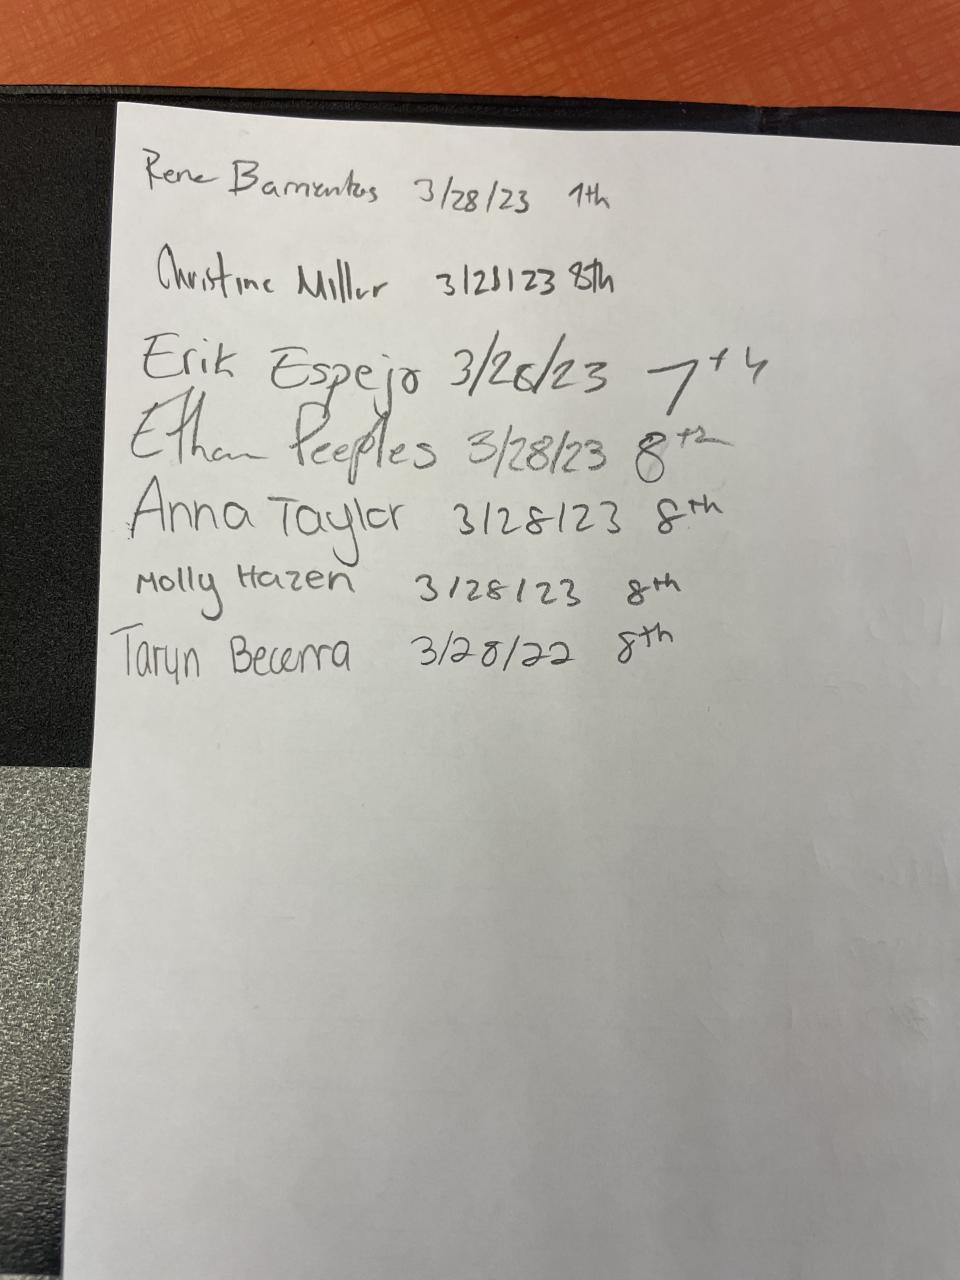 Rene Barrientos 3/28/23 7th
Christine Miller 3/28/23 8th
Erik Espejo 3/28/23 7th
Ethan Peeples 3/28/23 8th
Anna Taylor 3/28/23 8th
Molly Hazen 3/28/23 8th
Taryn Becerra 3/28/22 8th